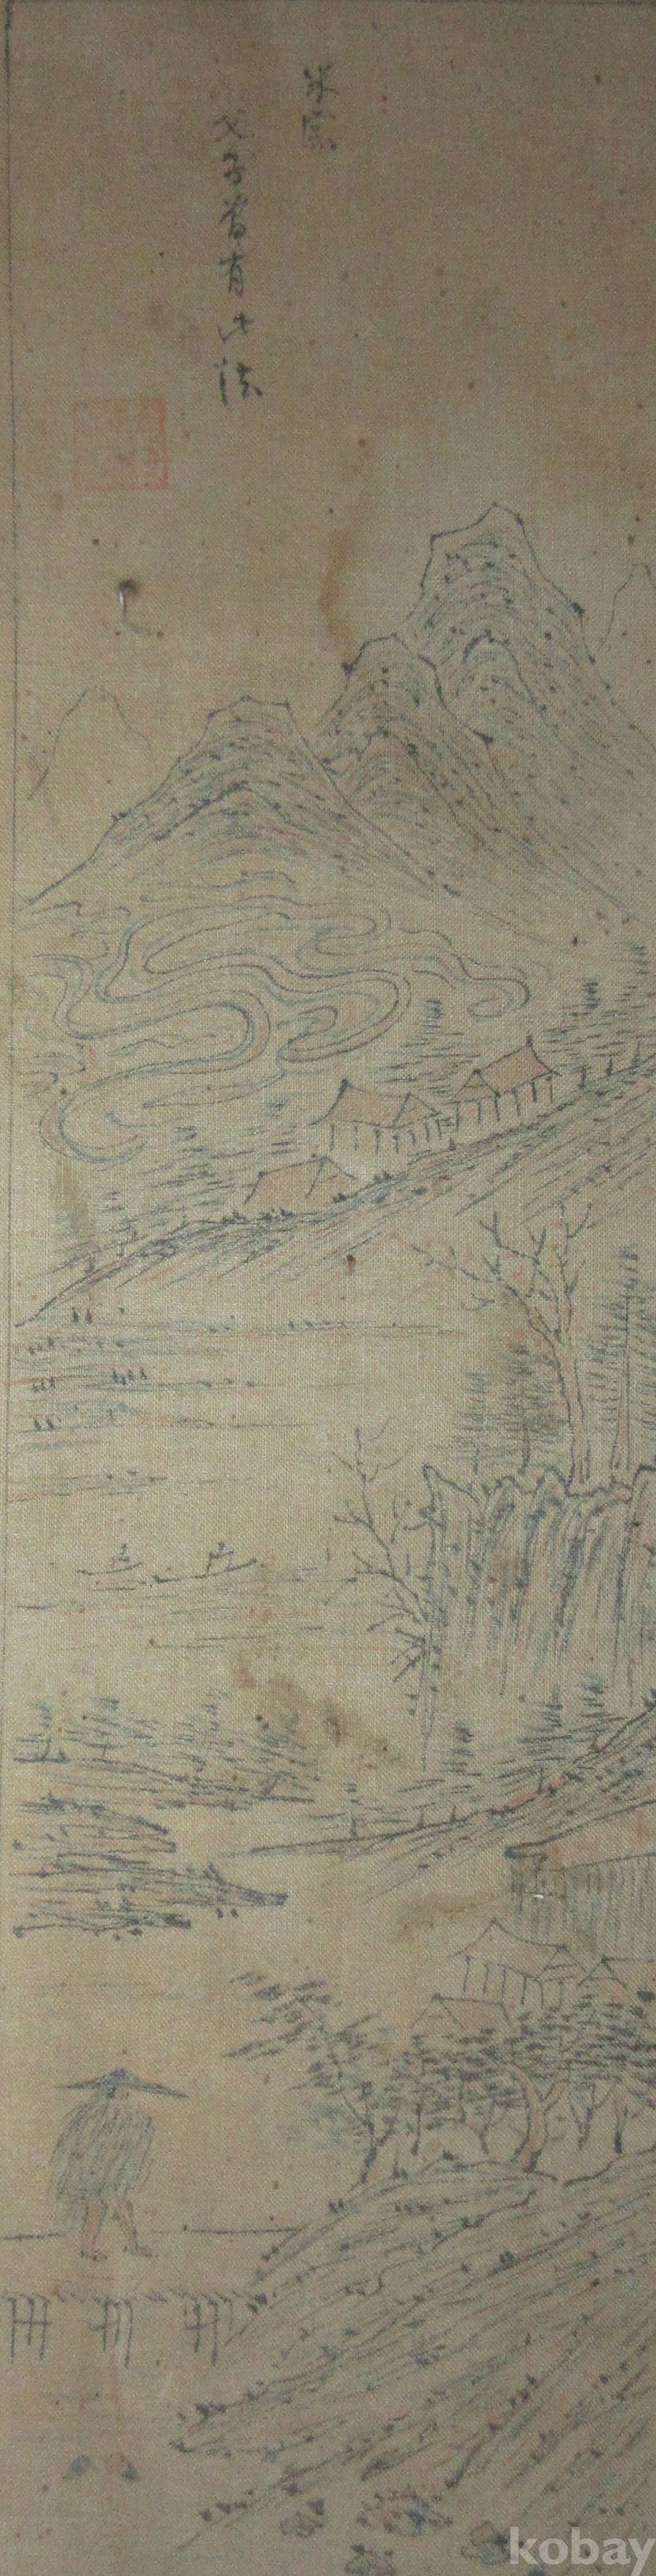 米家
父子嘗有此法
kobay